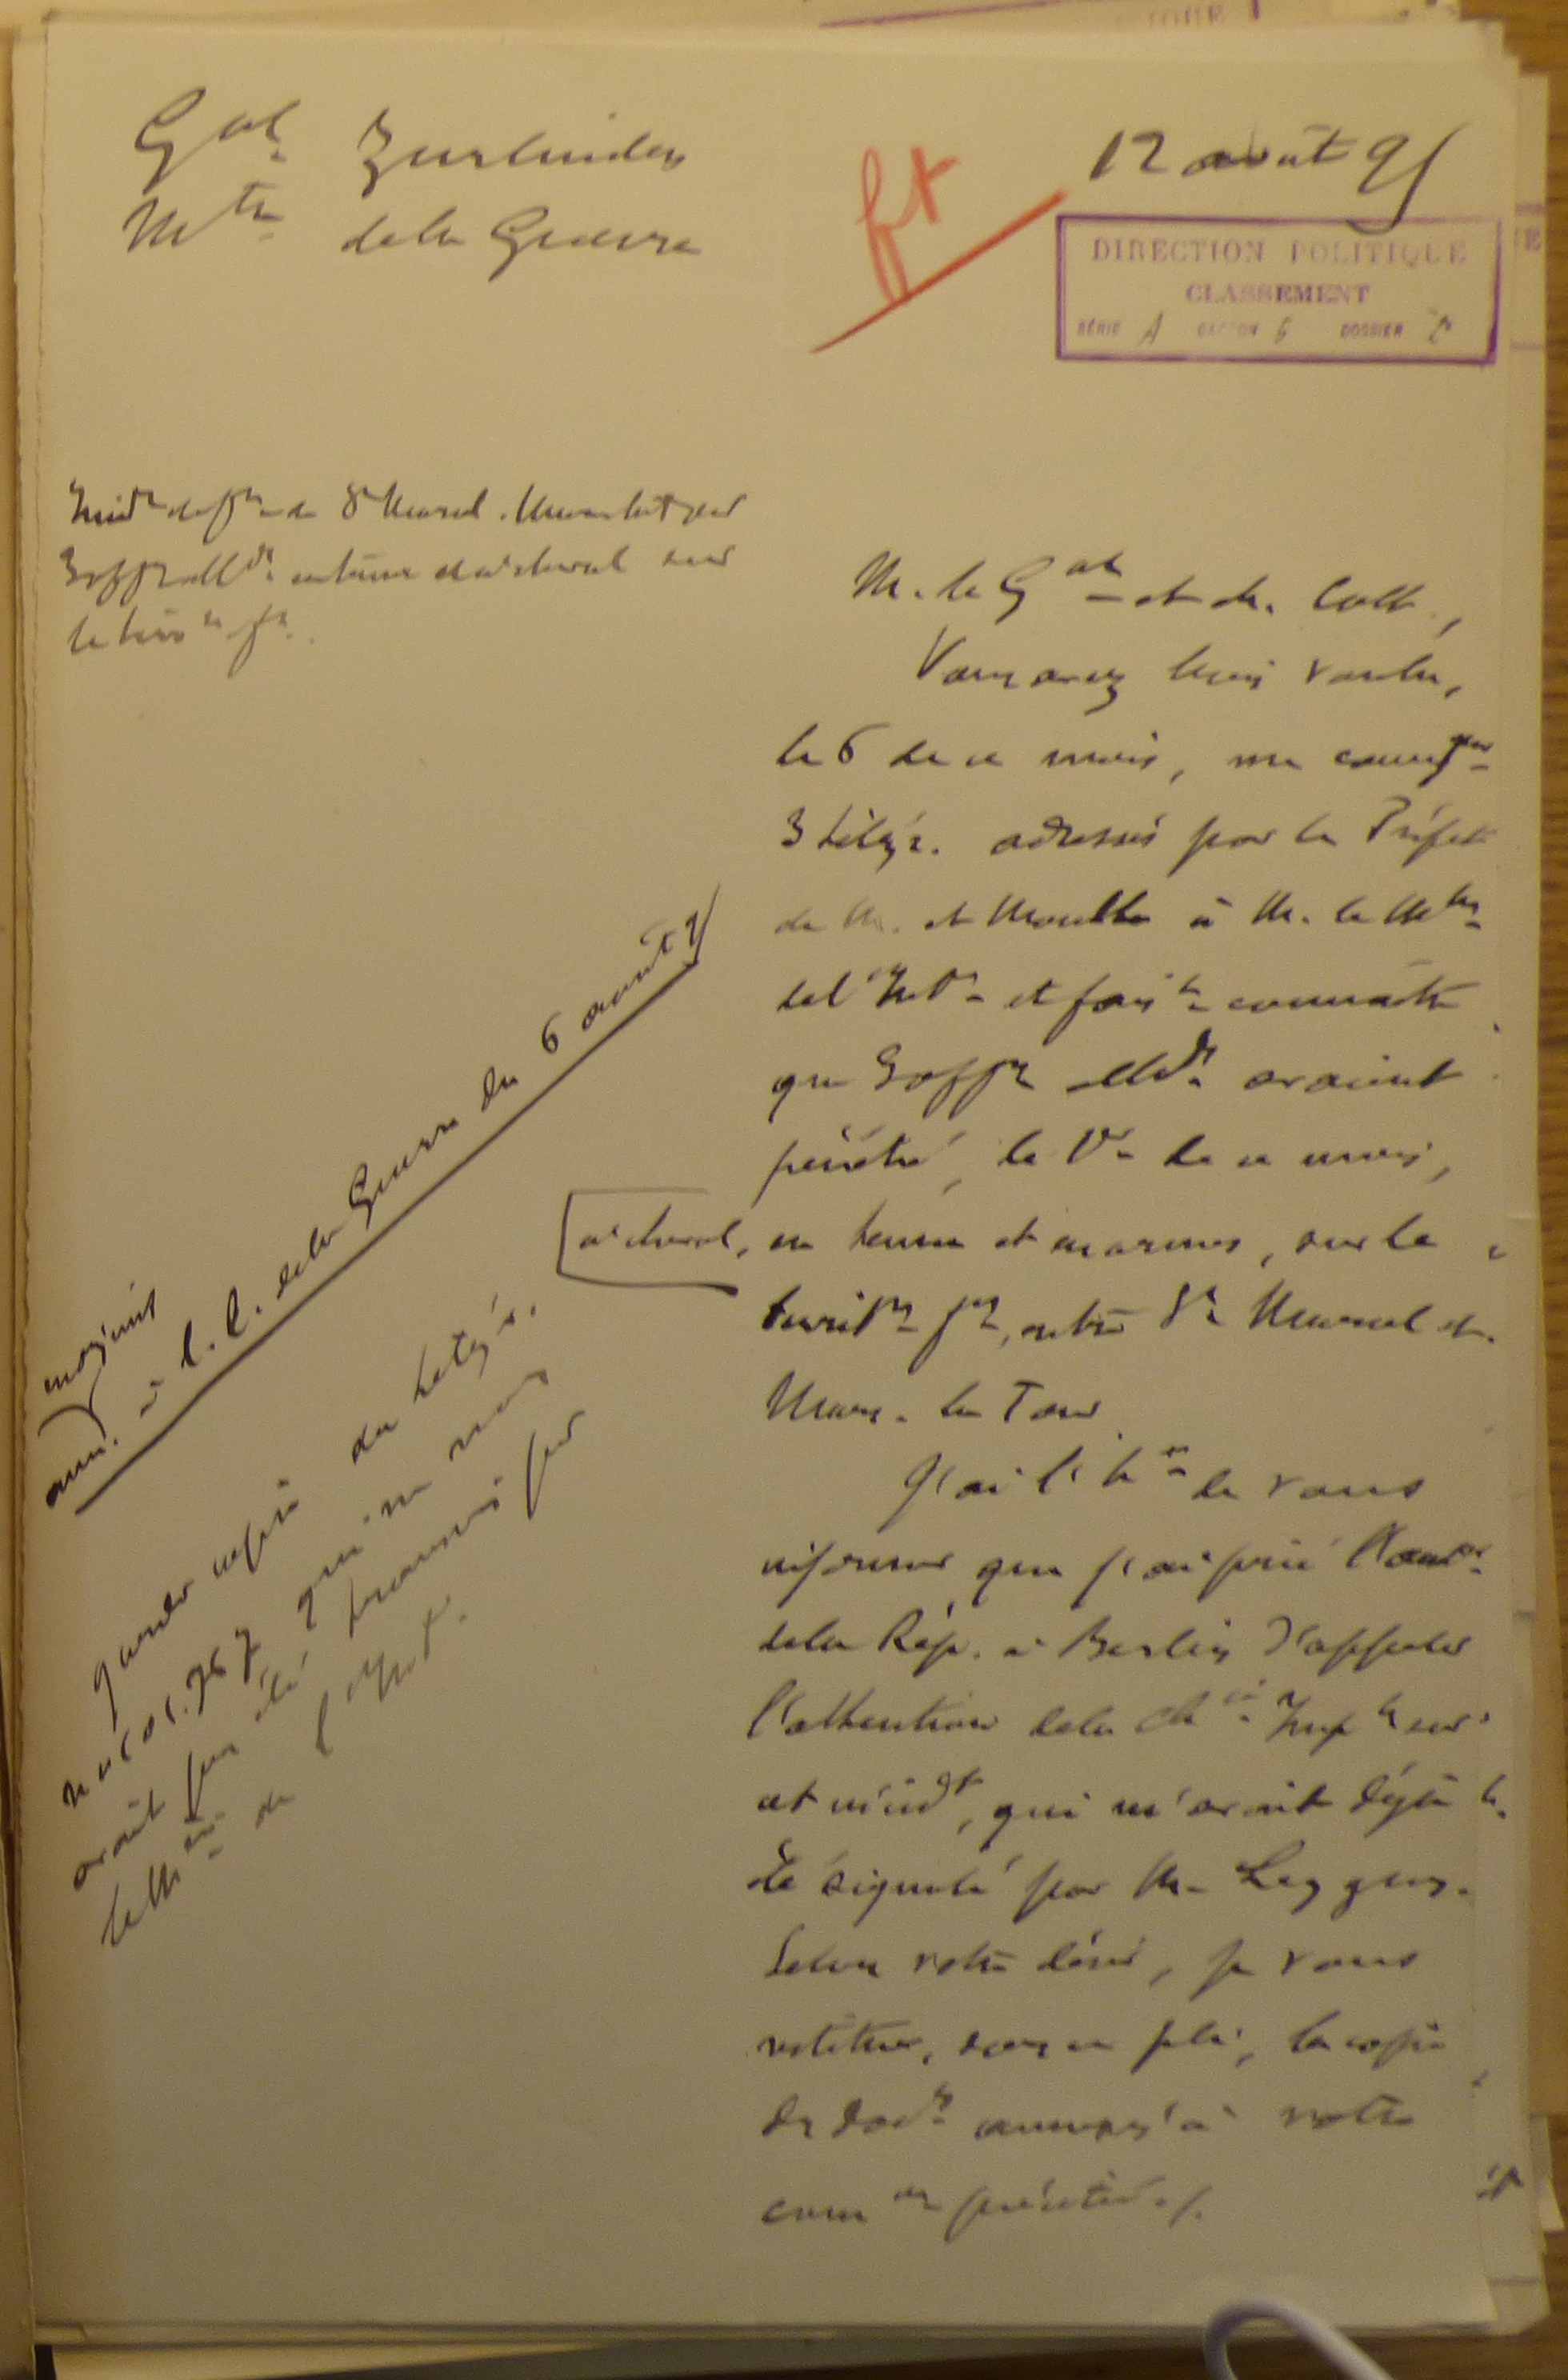 Gal Zurlinden
Mtre de la Guerre
12 août 95
DIRECTION POLITIQUE
CLASSEMENT
SÉRIE A CARTON 6 DOSSIER
3 offrs allds. entrence à cheval sur
le terre fr.
M. le Gal et ch. Coll.,
Vous avez bien voulu,
le 6 de ce mois, me comuqer
3 télégr. adressés par le Préfet
de M. et Moselle à M. le Mtre
de l'Intr et fait connaître
que 3 offrs allds avaient
pénétré, le 1er de ce mois,
à cheval, en tenue et en armes, sur le
territre fs, entre St Marcel et
Mars-la-Tour
J'ai l'hr de vous
informer que j'ai prié l'Ambr
de la Rép. à Berlin d'appeler
l'attention de la Chie Imple sur
cet incidt, qui m'avait déjà
été signalé par M. Leygues.
Selon votre désir, je vous
restitue, sous ce pli, la copie
des docts annexés à votre
comon précitée ./.
majeurs
ann. à l. l. de la Guerre du 6 août 95
garder copie du télégr.
qui ne nous
avait pas été transmis par
lettre de l'Int.